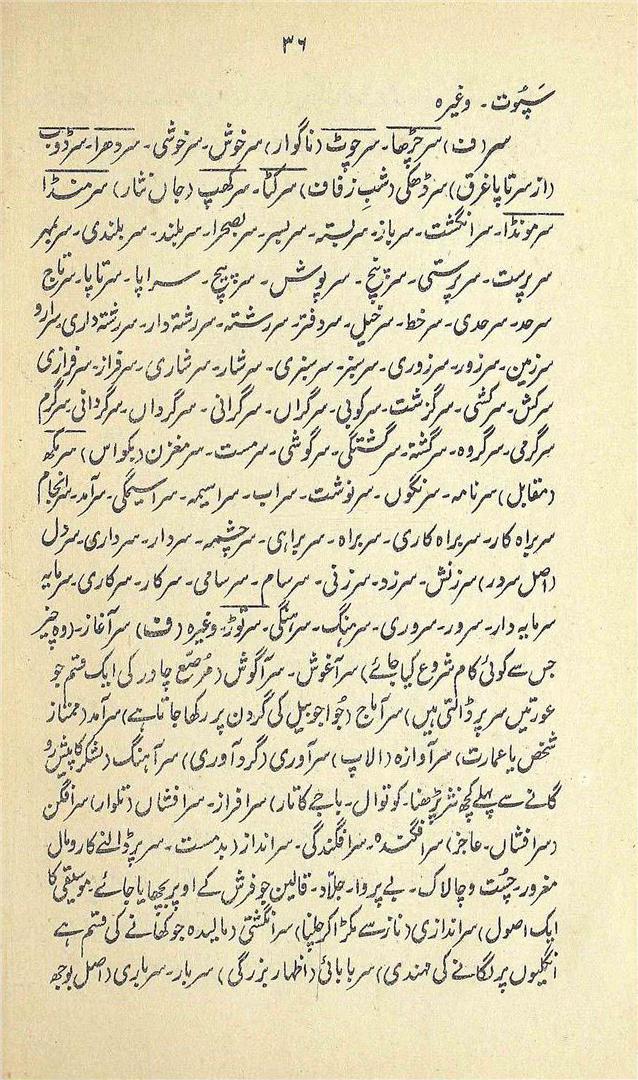 ۳۶
سَپُوت۔ وغیرہ
سر (ف) سرچڑھا۔ سرچوٹ (ناگوار) سرخوش۔ سرخوشی۔ سردھرا۔ سرڈوب
(از سر تا پا غرق) سرڈھکی (شبِ زفاف) سرکٹا۔ سرکھپ (جاں نثار) سرمنڈا
سرمونڈا۔ سرانگشت۔ سرباز۔ سربستہ۔ سربسر۔ سربصحرا۔ سربلند۔ سربلندی۔ سربمہر
سرپرست۔ سرپرستی۔ سرپنچ۔ سرپوش۔ سرپیچ۔ سراپا۔ سرتاپا۔ سرتاج
سرحد۔ سرحدی۔ سرخط۔ سرخیل۔ سردفتر۔ سررشتہ۔ سررشتہ دار۔ سررشتہ داری۔ سررو
سرزمین۔ سرزور۔ سرزوری۔ سرسبز۔ سرسبزی۔ سرشار۔ سرشاری۔ سرفراز۔ سرفرازی
سرکش۔ سرکشی۔ سرگزشت۔ سرکوبی۔ سرگراں۔ سرگرانی۔ سرگرداں۔ سرگردانی۔ سرگرم
سرگرمی۔ سرگروہ۔ سرگشتہ۔ سرگشتگی۔ سرگوشی۔ سرمست۔ سرمغزن (بکواس) سرمکھ
(مقابل) سرنامہ۔ سرنگوں۔ سرنوشت۔ سراب۔ سراسیمہ۔ سراسیمگی۔ سرآمد۔ سرانجام
سربراہ کار۔ سربراہ کاری۔ سربراہ۔ سربراہی۔ سرچشمہ۔ سردار۔ سرداری۔ سردل
(اصل سردر) سرزنش۔ سرزد۔ سرزنی۔ سرسام۔ سرسامی۔ سرکار۔ سرکاری۔ سرمایہ
سرمایہ دار۔ سرور۔ سروری۔ سرہنگ۔ سرہنگی۔ سرتوڑ۔ وغیرہ (ف) سرآغاز۔ (وہ چیز
جس سے کوئی کام شروع کیا جائے) سرآغوش۔ سرآگوش (مُرصّع چادر کی ایک قسم جو
عورتیں سر پر ڈالتی ہیں) سرآماج (جُوا جو بیل کی گردن پر رکھا جاتا ہے) سرآمد (ممتاز
شخص یا عمارت) سرآوازہ (الاپ) سرآوری (گردآوری) سرآہنگ (لشکر کا پیش رو
گانے سے پہلے کچھ نثر پڑھنا۔ کوتوال۔ باجے کا تار) سرافراز۔ سرافشاں (تلوار) سرافگن
(سرافشاں۔ عاجز) سرافگندہ۔ سرافگندگی۔ سرانداز (بدمست۔ سر پر ڈالنے کا رومال
مغرور۔ چُست و چالاک۔ بے پروا۔ جلّاد۔ قالین جو فرش کے اوپر بچھایا جائے۔ موسیقی کا
ایک اصول) سراندازی (ناز سے مکڑا کر چلنا) سرانگشتی (مالیدہ جو کھانے کی قسم ہے
انگلیوں پر لگانے کی مہندی) سربابائی (اظہار بزرگی) سربار۔ سرباری (اصل بوجھ